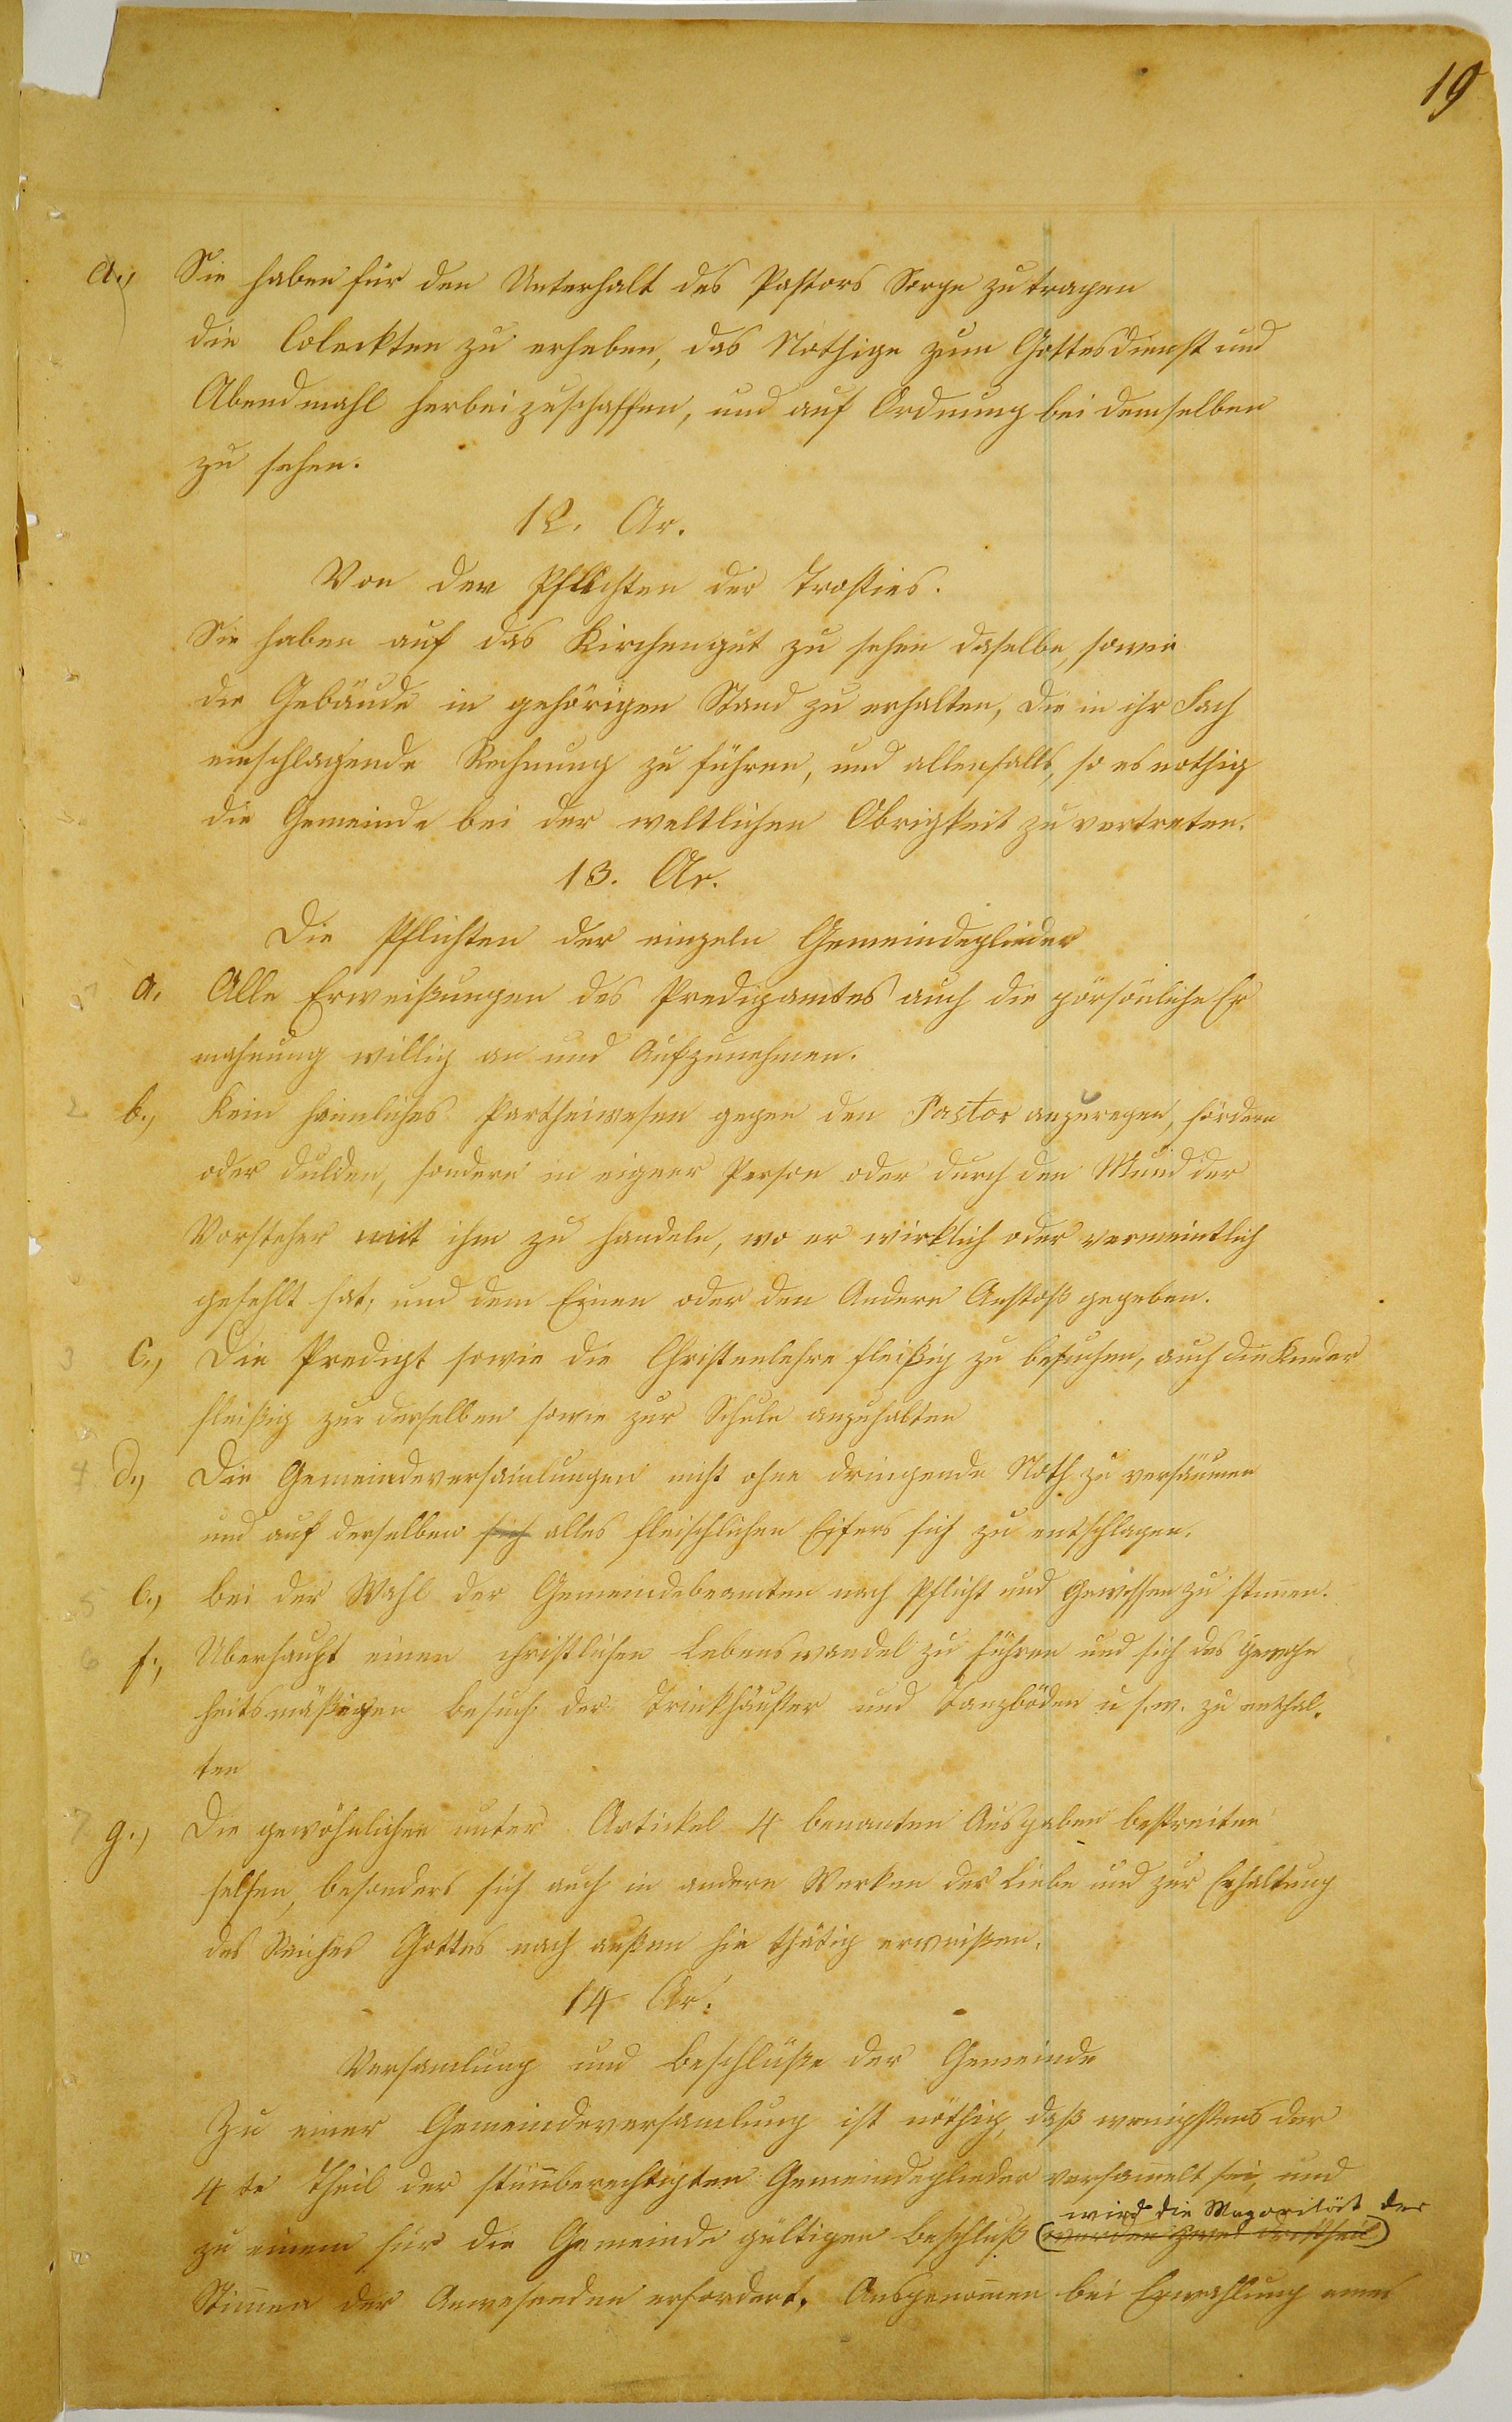 19
a., Sie haben für den Unterhalt des Pastors Sorge zu tragen
die Coleckten zu erheben, das Nothige zum Gottesdienst und
Abendmahl herbeizuschaffen, und auf Ordnung bei demselben
zu sehen.
12. Ar.
Von den Pflichten der Trosties.
Sie haben auf das Kirchengut zu sehen daselbe, sowie
die Gebäude in gehörigen Stand zu erhalten, die in ihr Fach
einschlagende Rechnung zu führen, und allenfalls, so es nothig
die Gemeinde bei der weltlichen Obrigkeit zu vertreten.
13. Ar.
Die Pflichten der einzeln Gemeindeglieder
a. Alle Erweißungen des Predigamtes auch die pörsönliche Er
mahnung willig an und Aufzunehmen.
2 b., Kein heimliches Partheiwesen gegen den Pastor anzuregen, fördern
oder dulden, sondern in eigner Person oder durch den Mund der
Vorsteher mit ihm zu handeln, wo er wirklich oder vermeintlich
gefehlt hat, und dem Einen oder den Andern Anstoß gegeben.
3 c., Die Predigt sowie die Christenlehre fleißig zu besuchen, auch die Kinder
fleißig zur derselben sowie zur Schule anzuhalten
4 d., Die Gemeindeversam̄lungen nicht ohne dringende Noth zu versäumen
und auf derselben sich alles fleischlichen Eifers sich zu entschlagen.
5 e., bei der Wahl der Gemeindebeamten nach Pflicht und Gewissen zu stim̄en.
6 f., Uberhaupt einen christlichen Lebenswandel zu führen und sich des gewohn
heitsmäßigen besuch der Trinkhäußer und Tanzböden u s. w. zu enthal.
ten
7 g., Die gewöhnlichen unter Artickel 4 benanten Ausgaben bestreiten
helfen, besonders sich auch in andern Werken der Liebe und zur Erhaltung
des Reiches Gottes nach außen hin thätig erweißen.
14 Ar.
Versamlung und beschlüße der Gemeinde
Zu einer Gemeindeversamlung ist nöthig, daß wenigstens der
4 te Theil der stim̄berechtigten Gemeindeglieder versam̄elt sei, und
wird die Majorität der
zu einem für die Gemeinde gültigen beschluß (werden zwei drittheil)
Stim̄en der Anwesenden erfordert. Ausgenom̄en bei Erwahlung eines